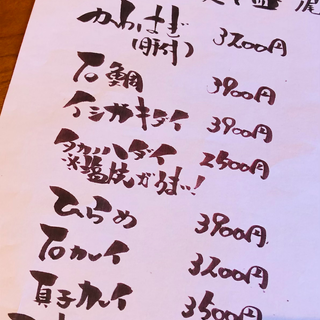 かわはぎ 3200円
(肝付)
石鯛 3900円
イシガキダイ 3900円
タカノハダイ 2500円
※塩焼がうまい!
ひらめ 3900円
石カレイ 3200円
真子カレイ 3500円